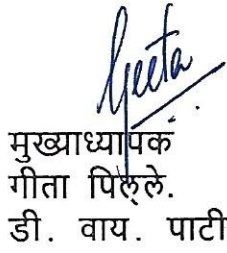 Geeta
मुख्याध्यापक
गीता पिल्ले.
डी. वाय. पाटी